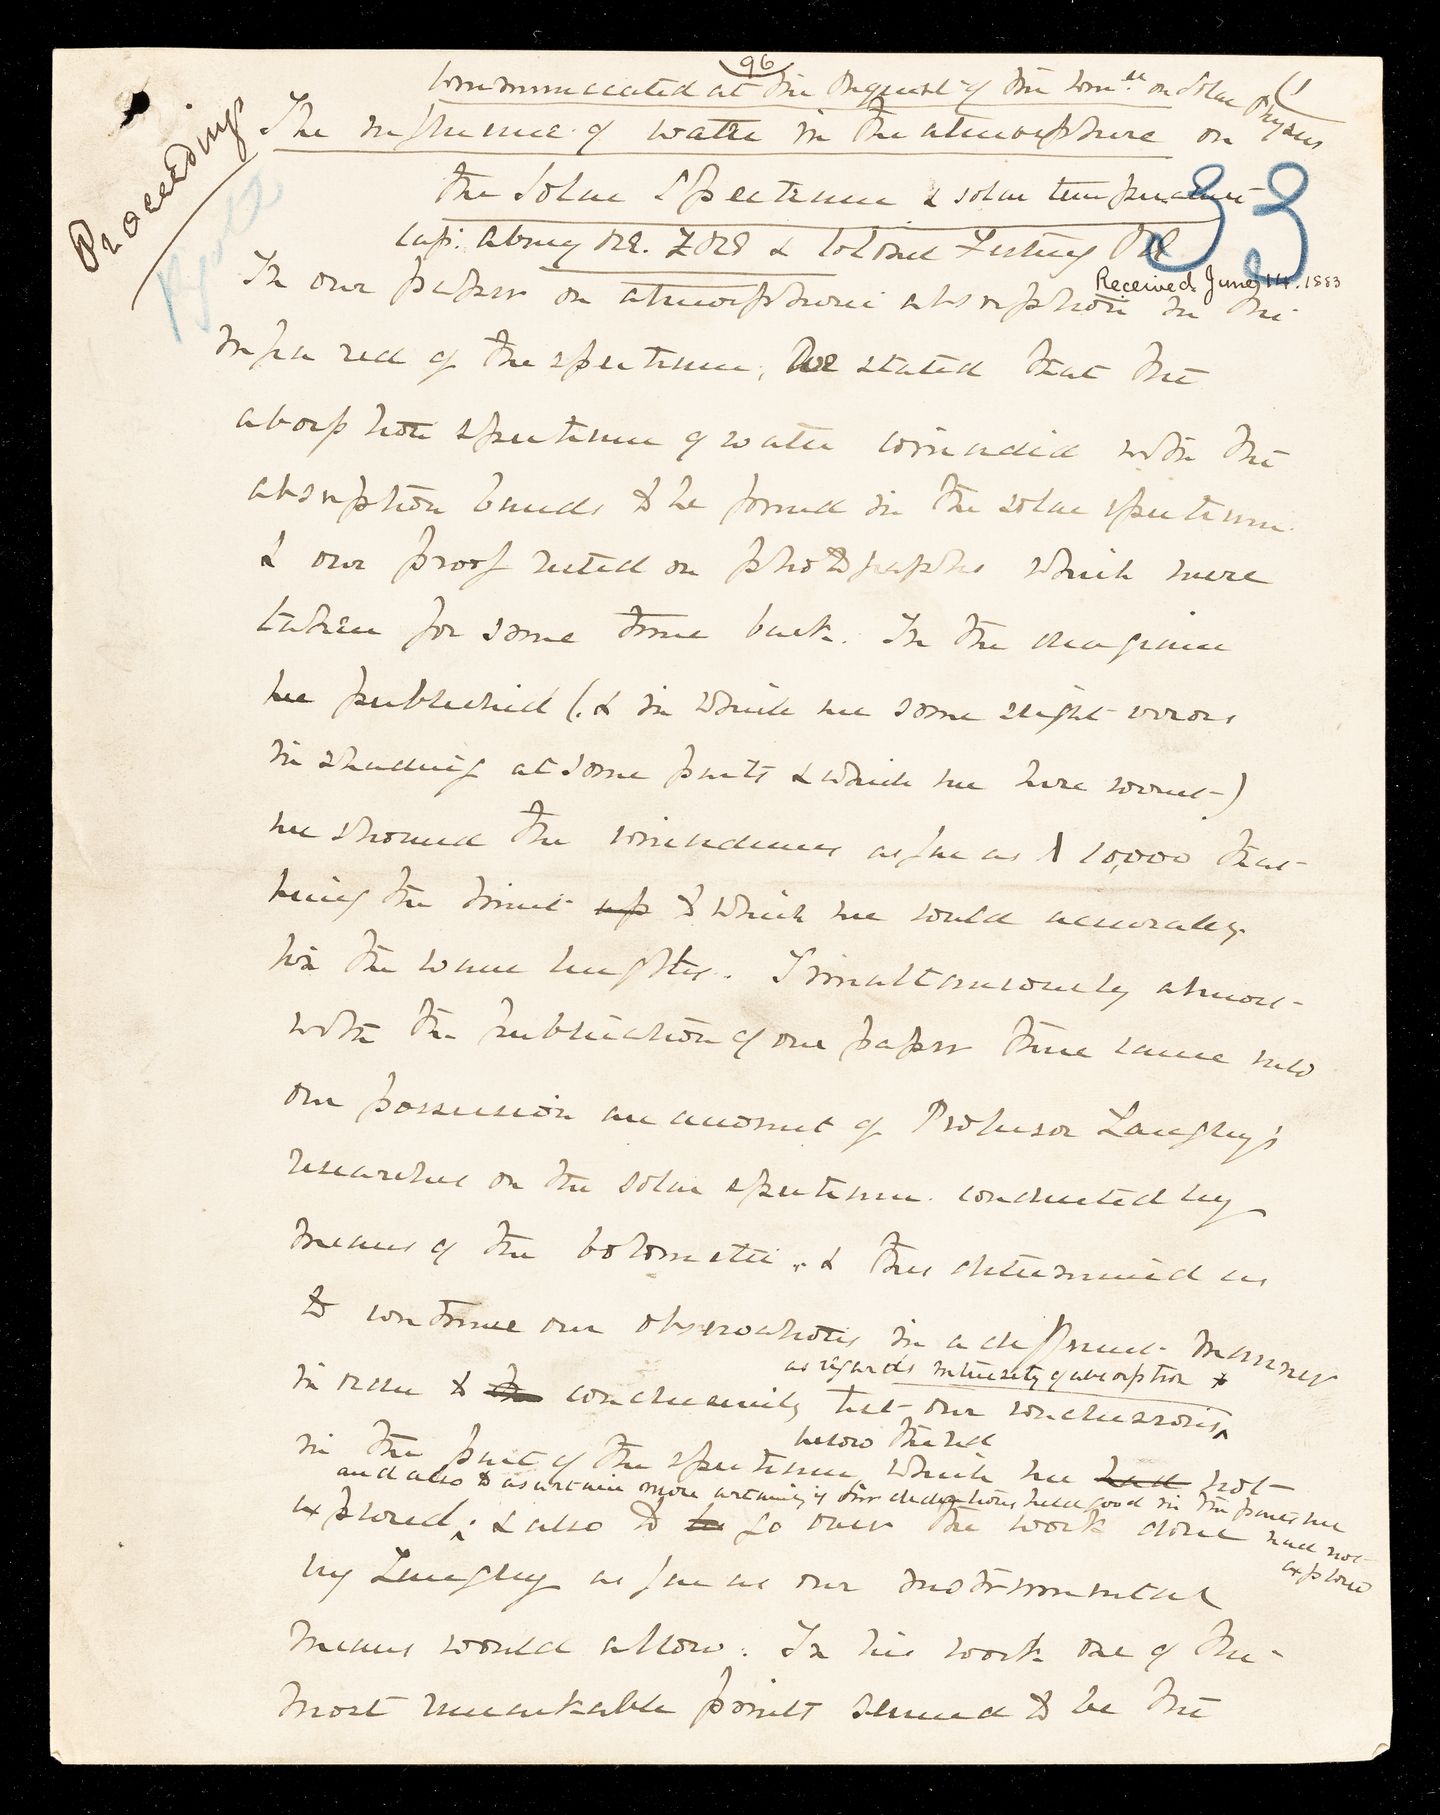 96
Communicated at the request of the Com.ee on Solar Physics
(1
Proceedings
The influence of water in the atmosphere on
the Solar Spectrum & solar temperature
33
Capt. Abney RE. FRS & Colonel Festing RE
Received June 14. 1883
In our paper on atmospheric absorption in the
infra red of the spectrum, we stated that the
absorption spectrum of water coincided with the
absorption bands to be found in the solar spectrum
& our proof rested on photographs which were
taken for some time back. In the diagram
we published (& in which were some slight errors
in shading at some parts & which we here correct)
we showed the coincidences as far as λ 10,000 that
being the limit up to which we could accurately
fix the wave lengths. Simultaneously almost
with the publication of our paper there came into
our possession an account of Professor Langley's
researches on the solar spectrum conducted by
means of the bolometer, & this determined us
to continue our observations in a different manner
as regards intensity of absorption
in order to conclusively test our conclusions
below the red
in the part of the spectrum which we had not
and also to ascertain more certainly if our deductions held good in the parts we
had not
explored
explored; & also to go over the work done
by Langley as far as our instrumental
means would allow. In his work one of the
most remarkable points seemed to be the